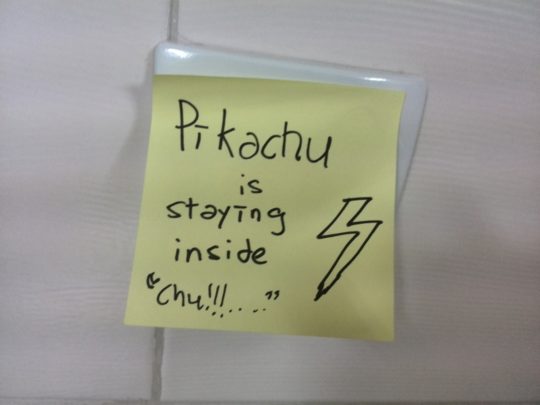 Pikachu
is
staying
inside
"Chu!!!....."